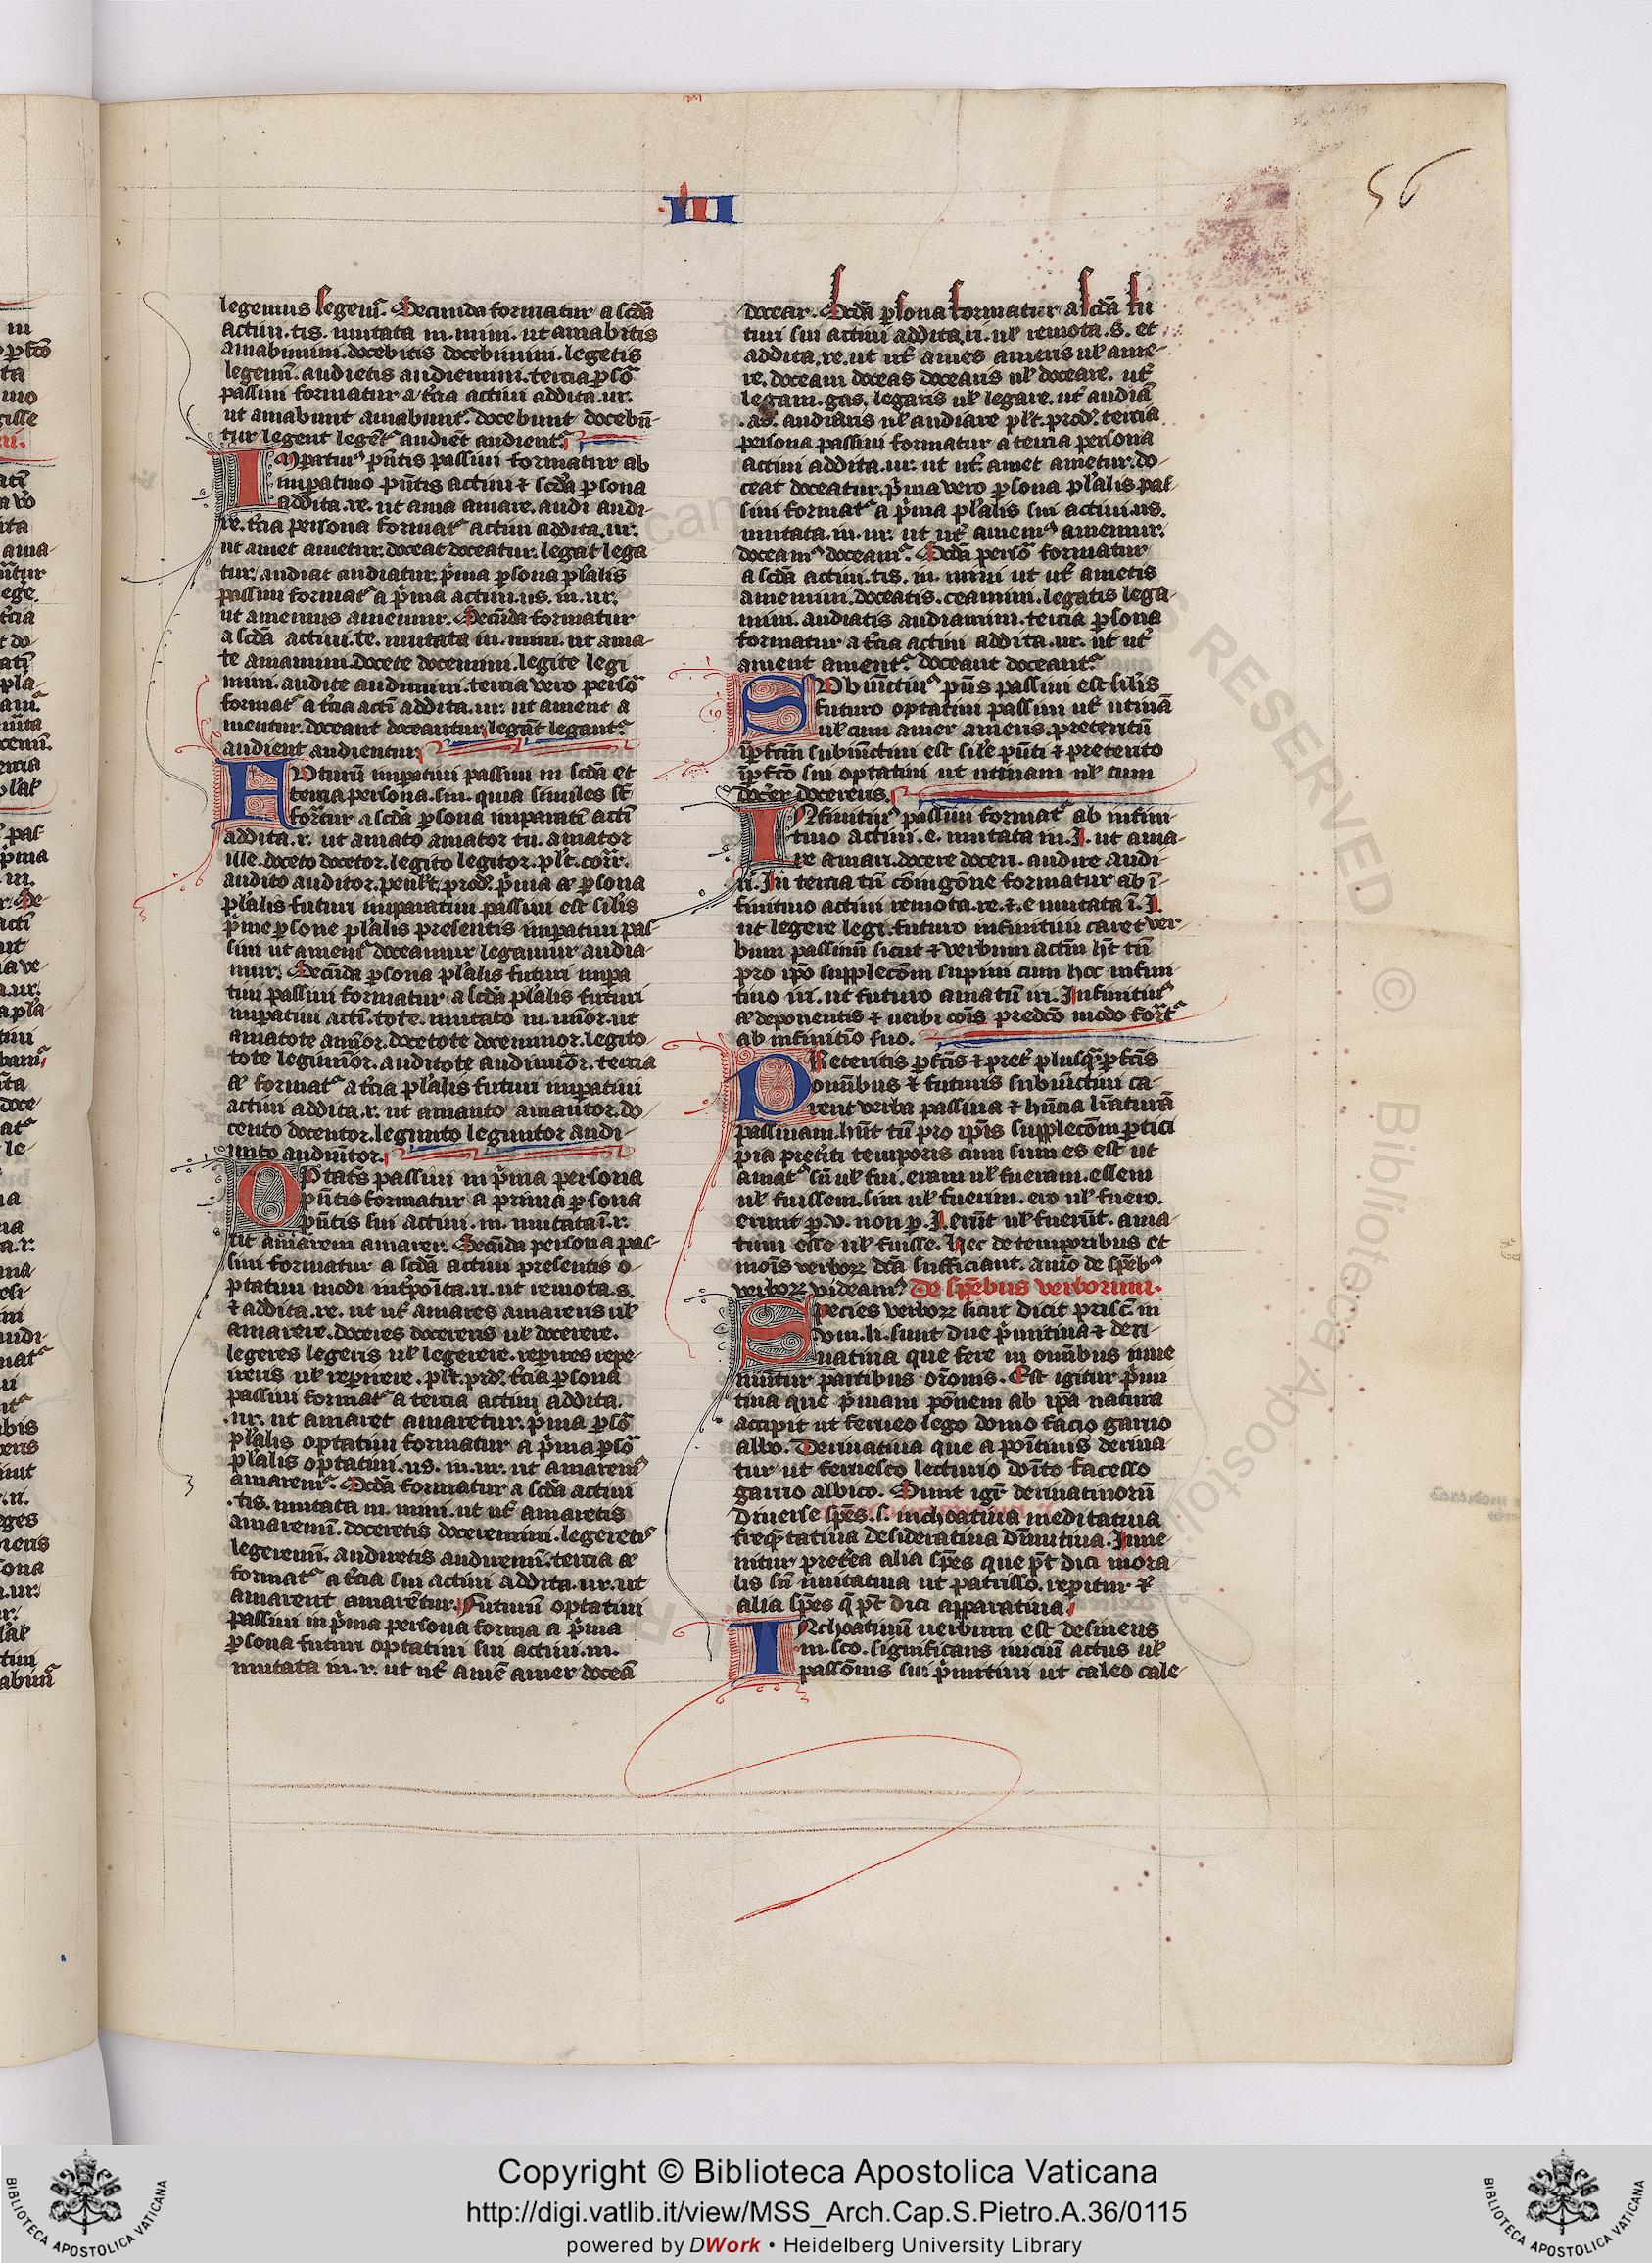 III
56
legemus legemur̃. Secunda formatur a scďa
actiui .tis. mutata in .mini. ut amabitis
amabimini. docebitis docebimini. legetis
legemĩ. audietis audiemini. tercia ꝑsõ
passiui formatur a t̾cia actiui addita .ur.
ut amabunt amabunt᷑. docebunt docebũ-
tur legent legẽt᷑ audiẽt audient᷑.
IMpatiuꝰ p̃ntis passiui formatur ab
imperatiuo p̃ntis actiui ⁊ scďa ꝑsona
addita .re. ut ama amare. audi audi-
re. t̾cia persona format᷑ actiui addita .ur.
ut amet ametur. doceat doceatur. legat lega
tur. audiat audiatur. p̾ma ꝑsona pl̃alis
passiui format᷑ a p̾ma actiui .us. in .ur.
ut amemus amemur. Secũda formatur
a scďa actiui .te. mutata in .mini. ut ama-
te amamini. docete docemini. legite legi
mini. audite audimini. tercia vero persõ
format᷑ a t̾cia actĩ addita .ur. ut ament a
mentur. doceant doceantur. legãt legant᷑.
audient audientur.
FUturũ impatiui passiui in scďa et
tercia persona .sin. quia similes st̃
for̃tur a scďa ꝑsona imparatĩ actĩ
addita .r. ut amato amator tu. amator
ille. doceto docetor. legito legitor. pl̃t. corr̃.
audito auditor. penl̃t. prod̾. p̾ma ꝑsona
pl̃alis futuri imparatiui passiui est sil̾is
p̾me ꝑsone pl̃alis presentis imperatiui pas-
siui ut amem᷑ doceamur legamur audia-
mur. Secũda ꝑsona pl̃alis futuri impa
tiui passiui formatur a scďa pl̃alis futuri
imperatiui actĩ .tote. mutato in .minor. ut
amatote amĩor. docetote doceminor. legito-
tote legimĩor. auditote audimĩor. tercia
format᷑ a t̾cia pl̃alis futuri imperatiui
actiui addita .r. ut amanto amantor. do-
cento docentor. legunto leguntor audi-
unto audiuntor.
OPtatꝰ passiui in p̾ma persona
p̃ntis formatur a prima ꝑsona
p̃ntis sui actiui .m. mutata ĩ .r.
ut amarem amarer. Secũda persona pas-
siui formatur a scďa actiui presentis o-
ptatiui modi int̾põita .ri. ut remota .s.
⁊ addita .re. ut ut̾ amares amareris ul̃
amarere. doceres docereris ul̃ docerere.
legeres legeris ul̃ legerere. reperires repe-
rireris ul̃ reperirere. pl̃t. prod̾. t̾cia ꝑsona
passiui format᷑ a tercia actiui addita.
.ur. ut amaret amaretur. p̾ma ꝑsõ
pl̃alis optatiui formatur a p̾ma ꝑsõ
pl̃alis optatiui .us. in .ur. ut amaremꝰ
amarem᷑. Scďa formatur a scďa actiui
.tis. mutata in .mini. ut ut̾ amaretis
amaremĩ. doceretis doceremini. legeretis
legeremĩ. audiretis audiremĩ. tercia
format᷑ a t̾cia sui actiui addita .ur. ut
amarent amarẽtur. Futurũ optatiui
passiui in p̾ma persona forma a p̾ma
ꝑsona futuri optatiui sui actiui .m.
mutata in .r. ut ut̾ amẽ amer doceã
docear. Scďa ꝑsona formatur a scďa fu
turi sui actiui addita .ri. ul̃ remota .s. et
addita .re. ut ut̾ ames ameris ul̃ ame-
re. doceam doceas docearis ul̃ doceare. ut̾
legam .gas. legaris ul̃ legare. ut̾ audiã
.as. audiaris ul̃ audiare pl̃t. prod̾. tercia
persona passiui formatur a tercia persona
actiui addita .ur. ut ut̾ amet ametur. do-
ceat doceatur. p̾ma vero ꝑsona pl̃alis pas-
siui format᷑ a p̾ma pl̃alis sui actiui .us.
mutata .in .ur. ut ut̾ amemꝰ amemur.
doceamꝰ doceam᷑. Scďa persõ formatur
a scďa actiui .tis. in .mini ut ut̾ ametis
amemini. doceatis .ceamini. legatis lega-
mini. audiatis audiamini. tercia ꝑsona
formatur a t̾cia actiui addita .ur. ut ut̾
ament ament᷑. doceant doceant᷑.
SUbiũctiuꝰ p̃ns passiui est sil̾is
futuro optatiui passiui ut̾ utinã
ul̃ cum amer ameris. preteritũ
ĩꝑfcm̃ subiũctiui est sil̾e p̃nti ⁊ preterito
ĩꝑfcõ sui optatiui ut utinam ul̃ cum
docer̃ docereris.
INfinitiuꝰ passiui format᷑ ab infini-
tiuo actiui .e. mutata in .I. ut ama-
re amari. docere doceri. audire audi-
ri. In tercia tñ cõiugõne formatur ab ĩ-
finitiuo actiui remota .re. ⁊ .e mutata ĩ .I
ut legere legi. futuro infinitiui caret ver-
bum passiuũ sicut ⁊ verbum actiũ hẽt tñ
pro ip̃o supplecõm supini cum hoc infini-
tiuo iri. ut futuro amatũ iri. Infinitiuꝰ
deponentis ⁊ uerbi cõis predcõ modo for̃t᷑
ab infinitiõ suo.
PReteritis ꝑfcĩs ⁊ pret̾ plusq̃ꝑfcĩs
om̃ibus ⁊ futuris subiũctiui ca-
rent verba passiua ⁊ hñcia l̃raturã
passiuam. hñt tñ pro ip̃is supplecõm ꝑtici
pia pret̾iti temporis cum sum es est ut
amatꝰ sũ ul̃ fui. eram ul̃ fueram. essem
ul̃ fuissem. sim ul̃ fuerim. ero ul̃ fuero.
erunt ꝑ .v. non ꝑ .I. erũt ul̃ fuerũt. ama-
tum esse ul̃ fuisse. Hec de temporibus et
modis verboꝝ dcã sufficiant. amõ de sp̃ebꝰ
verboꝝ videamꝰ De sp̃ebus verborum.
Species verboꝝ sicut dicit prisc̃. in
.viii. li. sunt due p̾mitiua ⁊ deri-
uatiua que fere in om̃ibus inue
niũtur partibus or̃onis. Est igitur p̾mi
tiua que p̾mam põnem ab ip̃a natura
accipit ut ferueo lego domo facio garrio
albo. Deriuatiua que a p̾mitiuis deriua
tur ut feruesco lecturio domĩto facesso
garrio albico. Sunt igr̃ deriuatiuorũ
Diuerse sp̃es .s. inchoatiua meditatiua
freq̃ntatiua desideratiua dĩmutiua. Inue
nitur pret̾ea alia sp̃es que p̃t dici mora
lis siũ imitatiua ut patrisso. reperitur ⁊
alia sp̃es q̃ p̃t dici apparatiua.
INchoatiuũ uerbum est desinens
in .sco. significans iniciũ actus ul̃
passiõnis sui p̾mitiui ut caleo cale-
Copyright © Biblioteca Apostolica Vaticana
http://digi.vatlib.it/view/MSS_Arch.Cap.S.Pietro.A.36/0115
powered by DWork • Heidelberg University Library
BIBLIOTECA APOSTOLICA VATICANA
BIBLIOTECA APOSTOLICA VATICANA